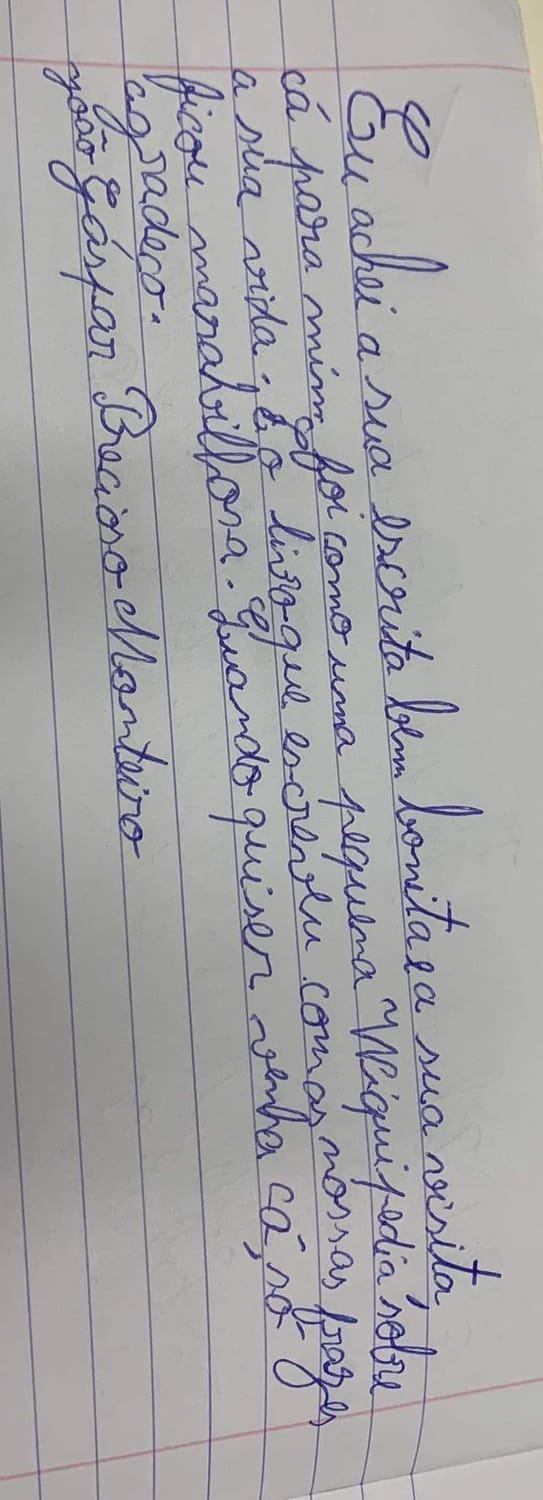 Eu achei a sua escrita bem bonita e a sua visita
cá para mim foi como uma pequena "Wiquipedia" sobre
a sua vida. E o livro que escreveu com as nossas frazes
ficou marabilhosa. Quando quiser venha cá, só
agradeço.
João Gáspar Precioso Monteiro